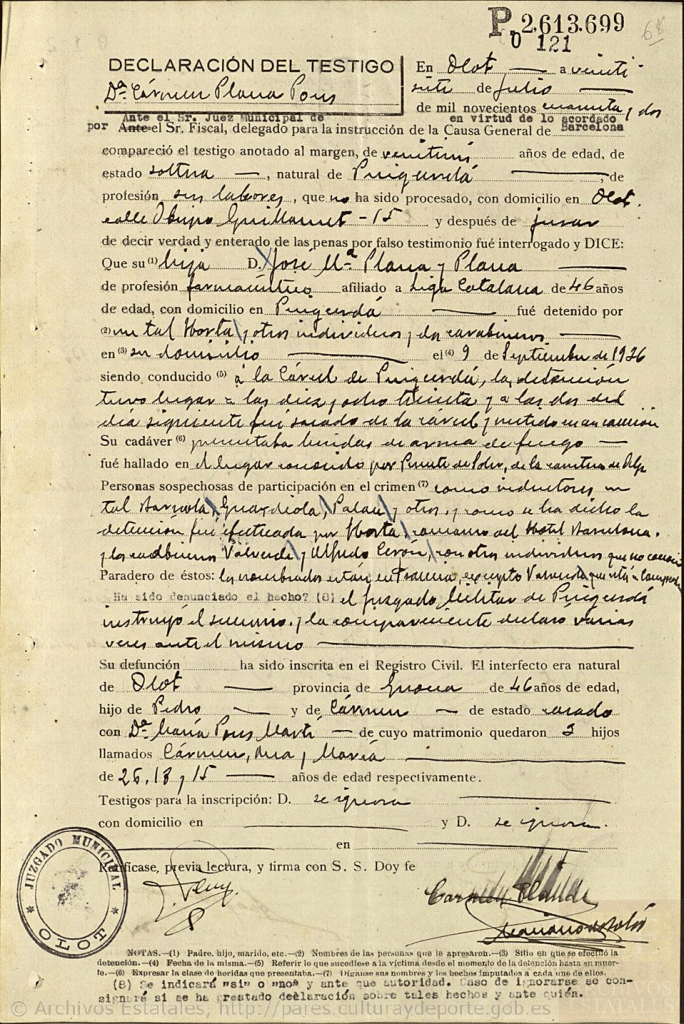 P. 2.613.699
O 121
68
DECLARACIÓN DEL TESTIGO
Dª Cármen Plana Pons
En Olot a veinti
siete de julio
de mil novecientos cuarenta y dos
Ante el Sr. Juez Municipal de en virtud de lo acordado
por Ante el Sr. Fiscal, delegado para la instrucción de la Causa General de Barcelona
compareció el testigo anotado al margen, de años de edad, de
estado soltera, natural de Puigcerdá de
profesión sus labores, que no ha sido procesado, con domicilio en Olot
calle Obispo Guillamet - 15 y después de jurar
de decir verdad y enterado de las penas por falso testimonio fué interrogado y DICE:
Que su (1) hija D. José Mª Plana y Plana
de profesión farmacéutico afiliado a Liga Catalana de 46 años
de edad, con domicilio en Puigcerdá fué detenido por
(2) un tal Horta y otros individuos y dos carabineros
en (3) su domicilio el (4) 9 de Septiembre de 1936
siendo conducido (5) á la Cárcel de Puigcerdá, la detención
tuvo lugar a las diez y ocho treinta y a las dos del
día siguiente fué sacado de la cárcel y metido en un camión
Su cadáver (6) presentaba heridas de arma de fuego
fué hallado en el lugar conocido por Puente de Soler, de la carretera de Alp
Personas sospechosas de participación en el crimen (7) como inductores un
tal Guardiola, Palau y otros, y como se ha dicho la
detención fué efectuada por Horta, camarero del Hotel Barcelona,
y los carabineros Valverde y Alfredo Cerón con otros individuos que no conoció
Paradero de éstos: los nombrados están en Francia, excepto Valverde que está
Ha sido denunciado el hecho? (8) el Juzgado Militar de Puigcerdá
instruyó el sumario, y la compareciente declaró varias
veces ante el mismo
Su defunción ha sido inscrita en el Registro Civil. El interfecto era natural
de Olot provincia de Gerona de 46 años de edad,
hijo de Pedro y de Cármen de estado casado
con Dª María Pons Martí de cuyo matrimonio quedaron 3 hijos
llamados Cármen, Ana y María
de 26, 18 y 15 años de edad respectivamente.
Testigos para la inscripción: D. se ignora
con domicilio en y D. se ignora.
en
Ratifícase, previa lectura, y tirma con S. S. Doy fe
Carmen Plana
JUZGADO MUNICIPAL
OLOT
NOTAS.—(1) Padre, hijo, marido, etc.—(2) Nombres de las personas que le apresaron.—(3) Sitio en que se efectuó la
detención.—(4) Fecha de la misma.—(5) Referir lo que sucediese a la víctima desde el momento de la detención hasta su muer-
te.—(6) Expresar la clase de heridas que presentaba.—(7) Díganse sus nombres y los hechos imputados a cada uno de ellos.
(8) Se indicará "si" o "no" y ante que autoridad. Caso de ignorarse se con-
signará si se ha prestado declaración sobre tales hechos y ante quién.
© Archivos Estatales, http://pares.culturaydeporte.gob.es